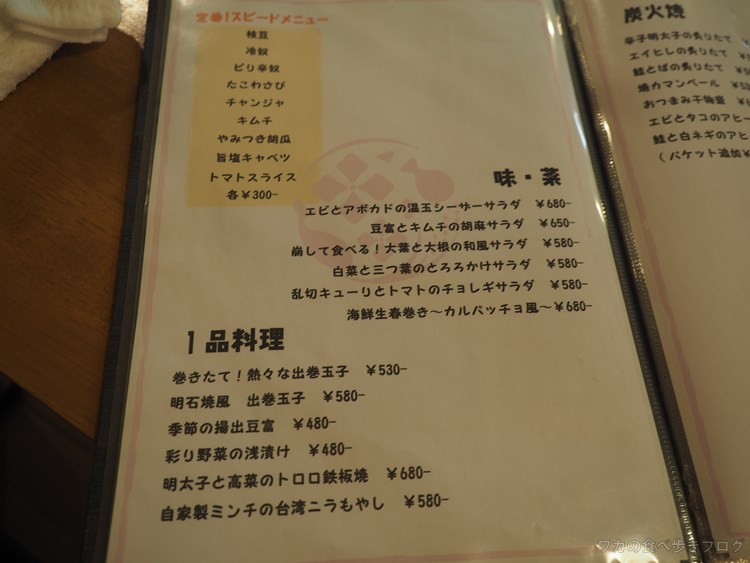 定番！スピードメニュー
枝豆
冷奴
ピリ辛奴
たこわさび
チャンジャ
キムチ
やみつき胡瓜
旨塩キャベツ
トマトスライス
各￥300-
味・菜
エビとアボカドの温玉シーザーサラダ ￥680-
豆富とキムチの胡麻サラダ ￥650-
崩して食べる！大葉と大根の和風サラダ ￥580-
白菜と三つ葉のとろろかけサラダ ￥580-
乱切キューりとトマトのチョレギサラダ ￥580-
海鮮生春巻き～カルパッチョ風～￥680-
1品料理
巻きたて！熱々な出巻玉子 ￥530-
明石焼風 出巻玉子 ￥580-
季節の揚出豆富 ￥480-
彩り野菜の浅漬け ￥480-
明太子と高菜のトロロ鉄板焼 ￥680-
自家製ミンチの台湾ニラもやし ￥580-
炭火焼
辛子明太子の炙りたて
エイヒレの炙りたて
鮭とばの炙りたて
焼カマンベール
おつまみ干物盛
エビとタコのアヒー
鮭と白ネギのアヒ
（バケット追加￥
ワカの食べ歩きブログ